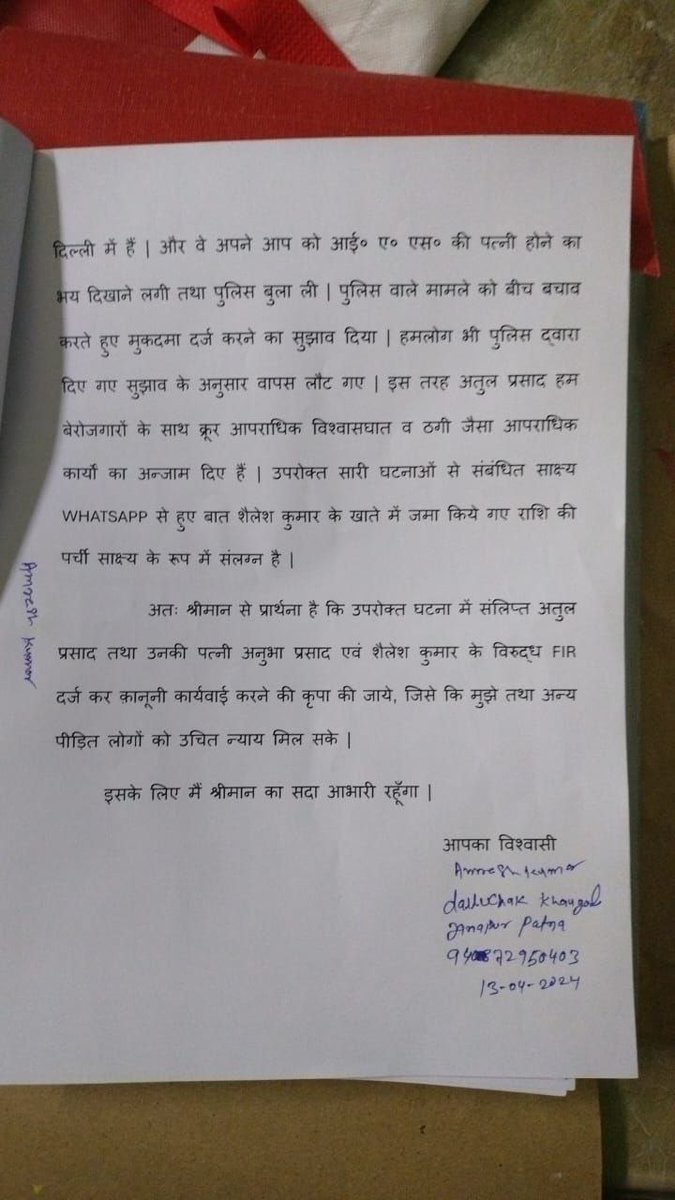 दिल्ली में हैं | और वे अपने आप को आई० ए० एस० की पत्नी होने का
भय दिखाने लगी तथा पुलिस बुला ली | पुलिस वाले मामले को बीच बचाव
करते हुए मुकदमा दर्ज करने का सुझाव दिया | हमलोग भी पुलिस द्वारा
दिए गए सुझाव के अनुसार वापस लौट गए | इस तरह अतुल प्रसाद हम
बेरोजगारों के साथ क्रूर आपराधिक विश्वासघात व ठगी जैसा आपराधिक
कार्यो का अन्जाम दिए हैं | उपरोक्त सारी घटनाओं से संबंधित साक्ष्य
WHATSAPP से हुए बात शैलेश कुमार के खाते में जमा किये गए राशि की
पर्ची साक्ष्य के रूप में संलग्न है |
अतः श्रीमान से प्रार्थना है कि उपरोक्त घटना में संलिप्त अतुल
प्रसाद तथा उनकी पत्नी अनुभा प्रसाद एवं शैलेश कुमार के विरुद्ध FIR
दर्ज कर क़ानूनी कार्यवाई करने की कृपा की जाये, जिसे कि मुझे तथा अन्य
पीड़ित लोगों को उचित न्याय मिल सके |
इसके लिए मैं श्रीमान का सदा आभारी रहूँगा |
आपका विश्वासी
Khaugal
Patna
13-04-2024
Kumar